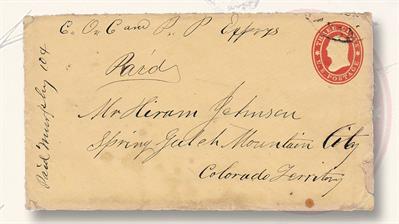 C. O. C and P. P Express
Paid
THREE CENTS
U.S. POSTAGE
Mr Hiram Johnson
Spring Gulch Mountain City
Colorado Territory
Paid Murphy 104